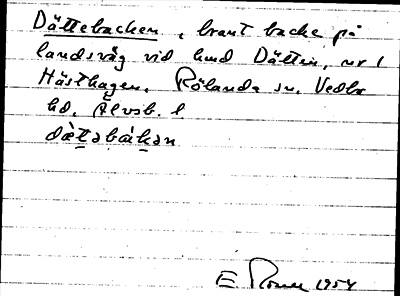 Dättebacken, brant backe på
landsväg vid hmd Dätten, nr 1
Hästhagen, Rölanda sn, Vedbo
hd, Älvsb. l
dätabàkan
E 1954